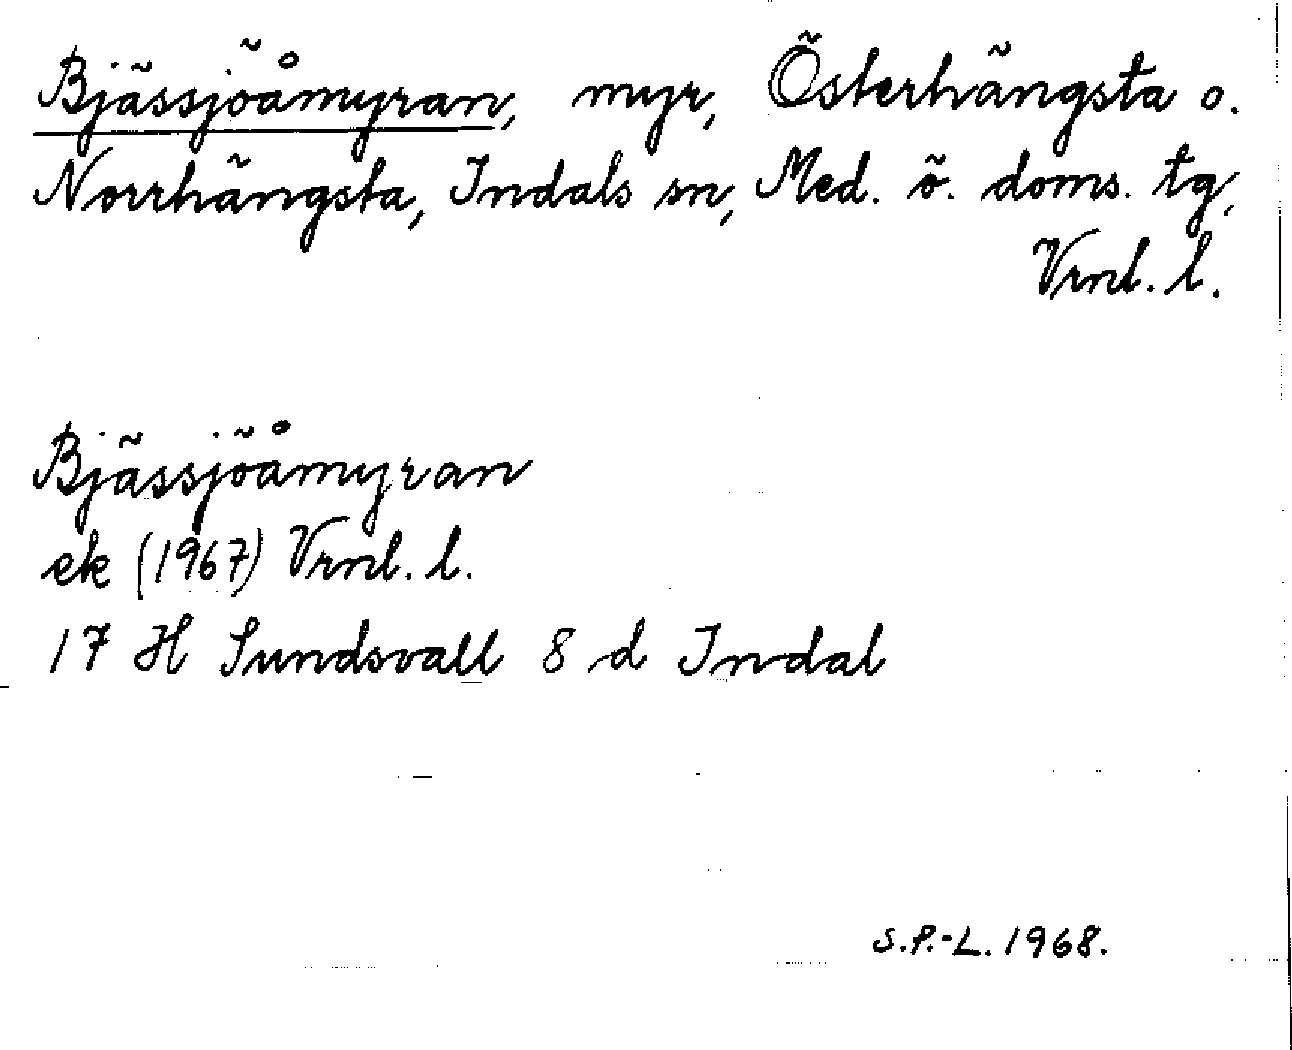 Bjässjöåmyran, myr, Österhängsta o.
Norrhängsta, Indals sn, Med. ö. doms. tg,
Vrnl. l.
Bjässjöåmyran
ek (1967) Vrnl. l.
17 H Sundsvall 8 d Indal
S.P.-L. 1968.